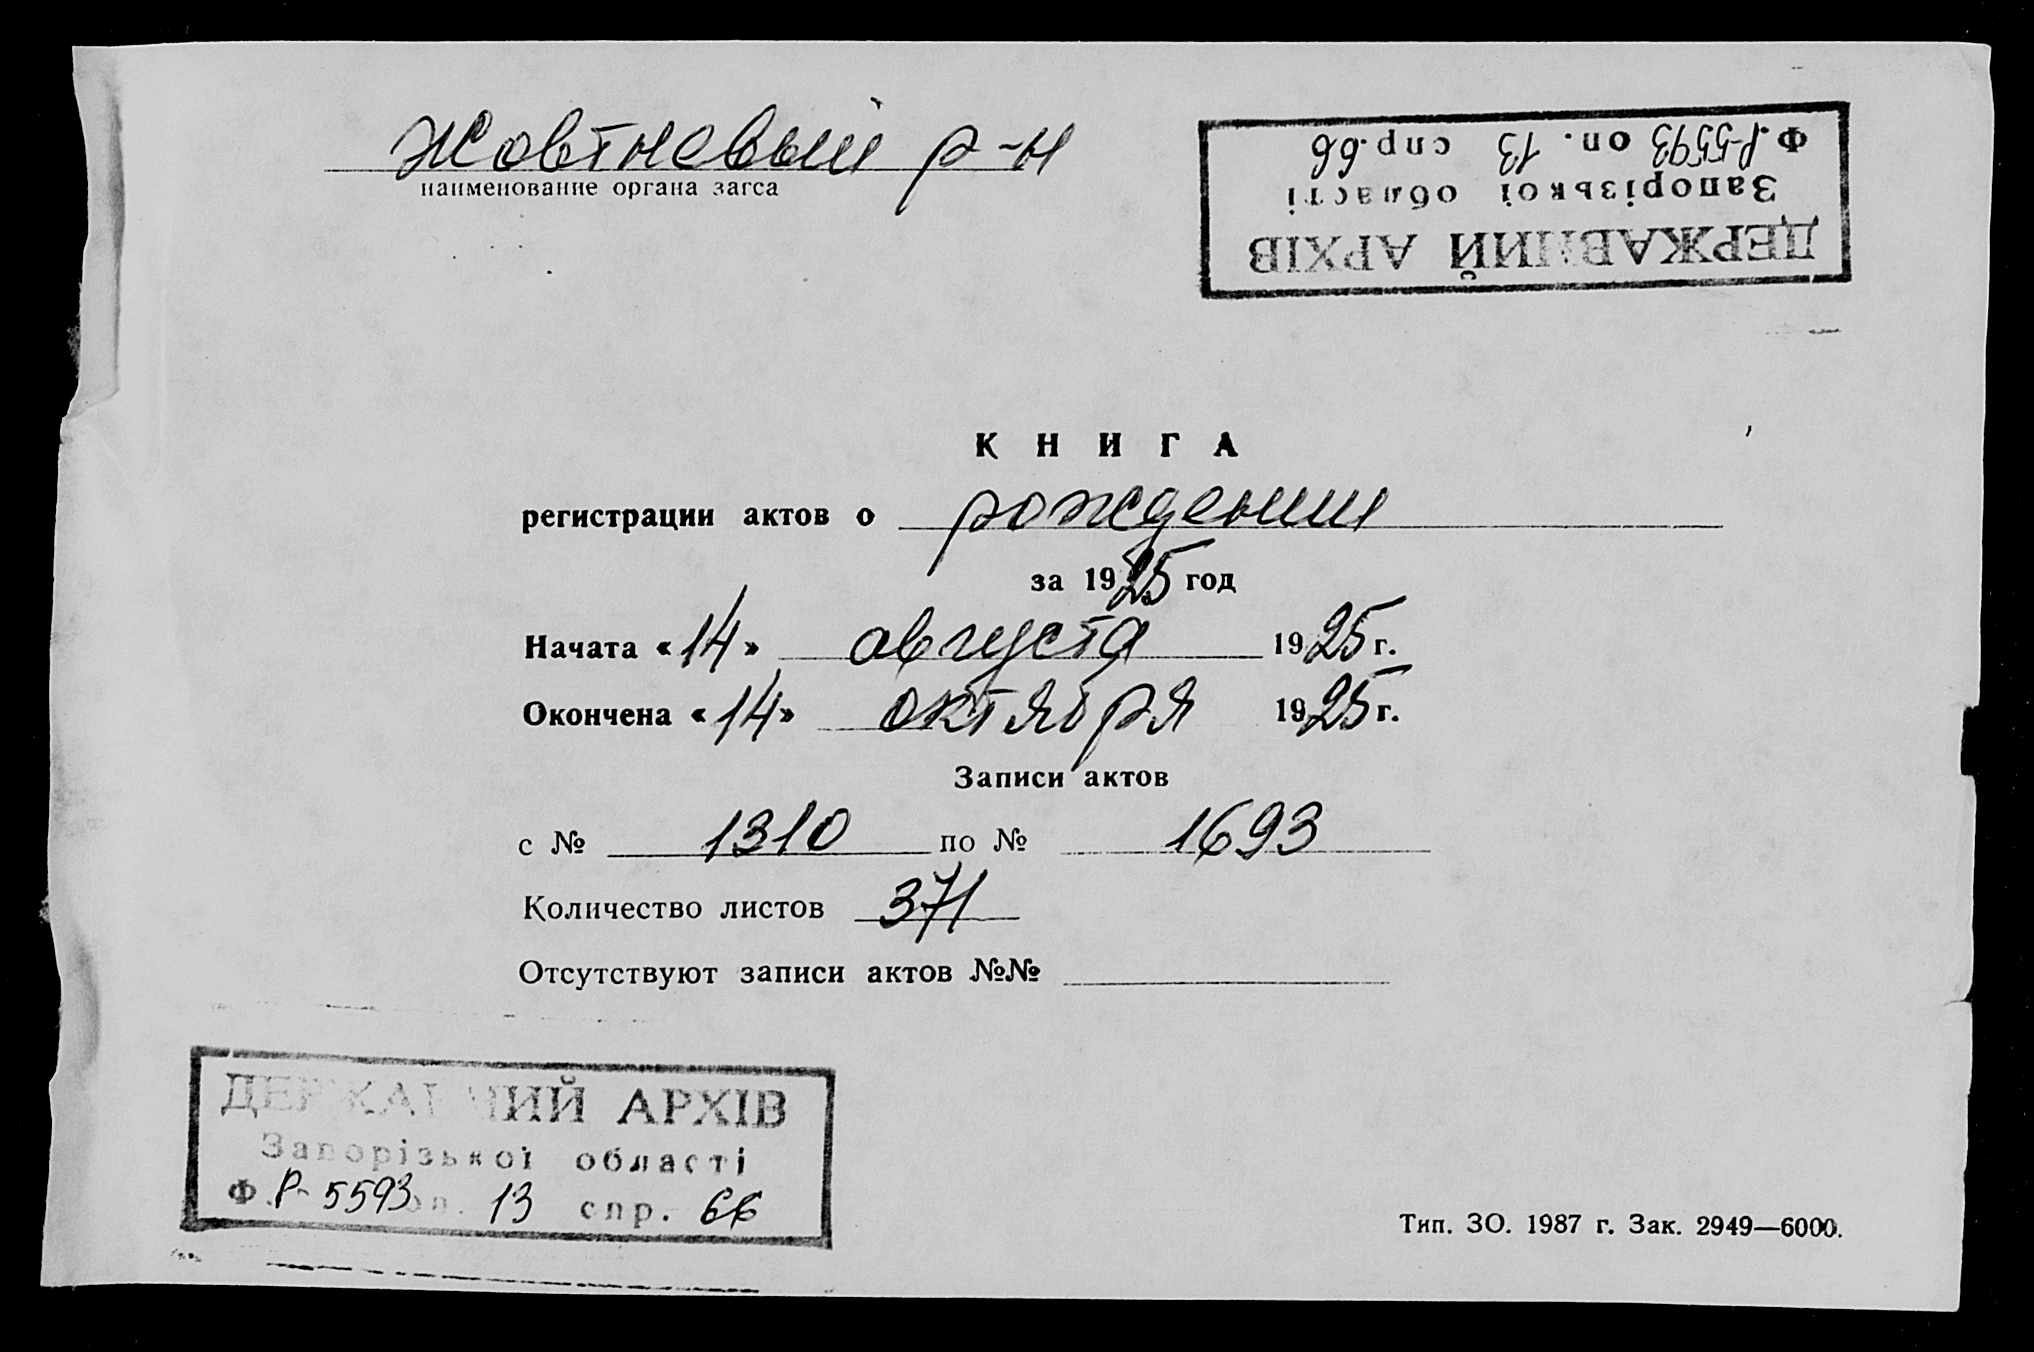 Жовтневый р-н
наименование органа загса
ДЕРЖАВНИЙ АРХІВ
Запорізької області
Ф. Р-5593 оп. 13 спр. 66
КНИГА
регистрации актов о рождении
за 1925 год
Начата «14» августа 1925 г.
Окончена «14» октября 1925 г.
Записи актов
с № 1310 по № 1693
Количество листов 371
Отсутствуют записи актов №№
ДЕРЖАВНИЙ АРХІВ
Запорізької області
Ф. Р-5593 оп. 13 спр. 66
Тип. ЗО. 1987 г. Зак. 2949—6000.